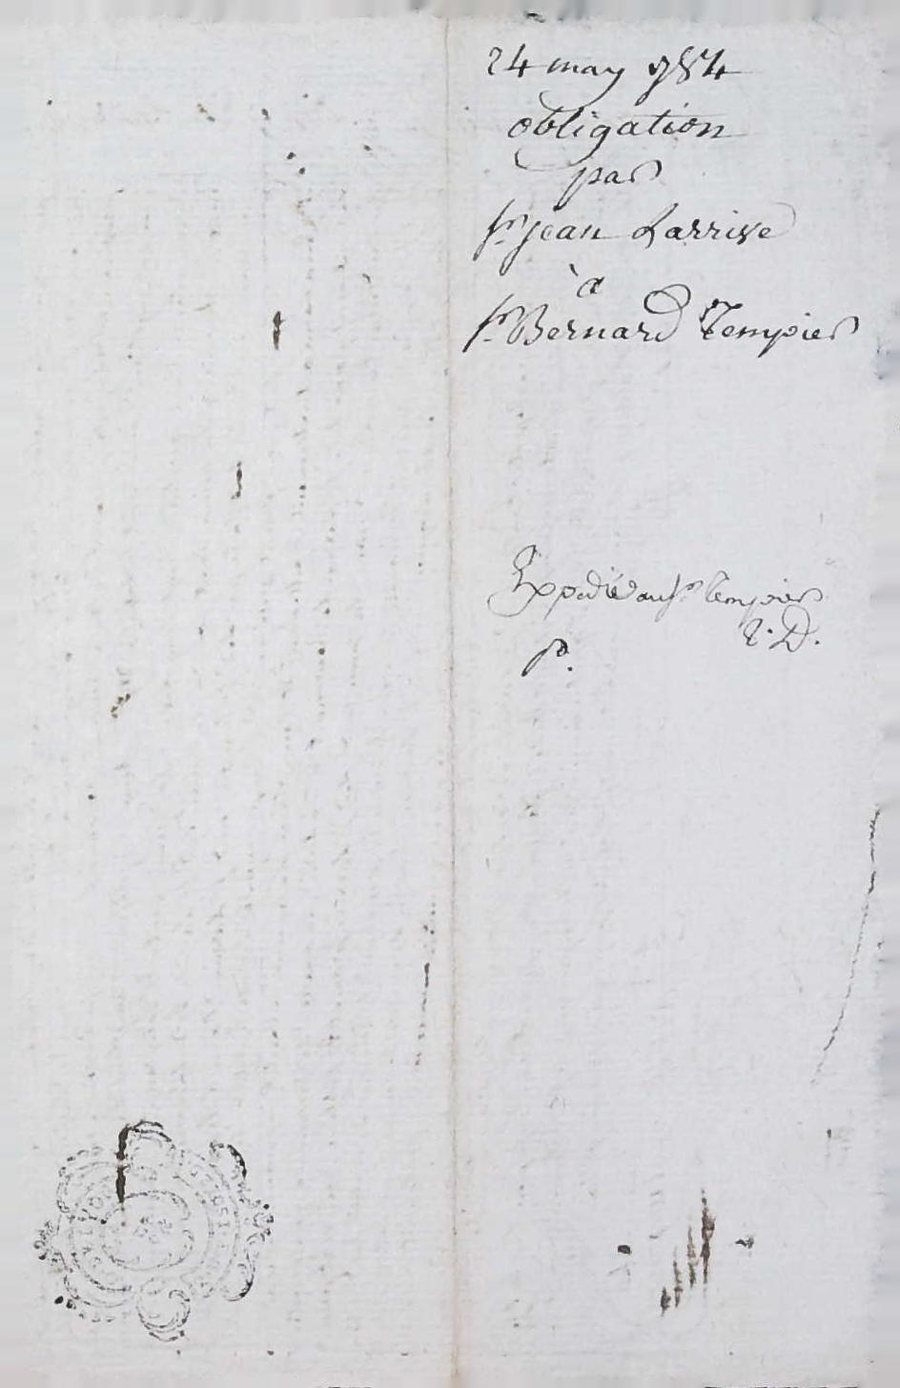 24 may 1784
obligation
par
Sr Jean Larrive
à
Sr Bernard Tempier
Expedié au Sr Tempier